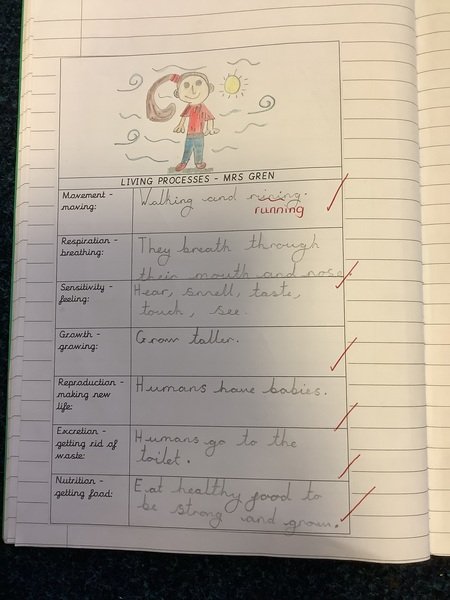 LIVING PROCESSES - MRS GREN
Movement -
moving:
Walking and rining.
running
Respiration -
breathing:
They breath through
their mouth and nose.
Sensitivity -
feeling:
Hear, smell, taste,
touch, see.
Growth -
growing:
Grow taller.
Reproduction -
making new
life:
Humans have babies.
Excretion -
getting rid of
waste:
Humans go to the
toilet.
Nutrition -
getting food:
Eat healthy food to
be strong and grow.